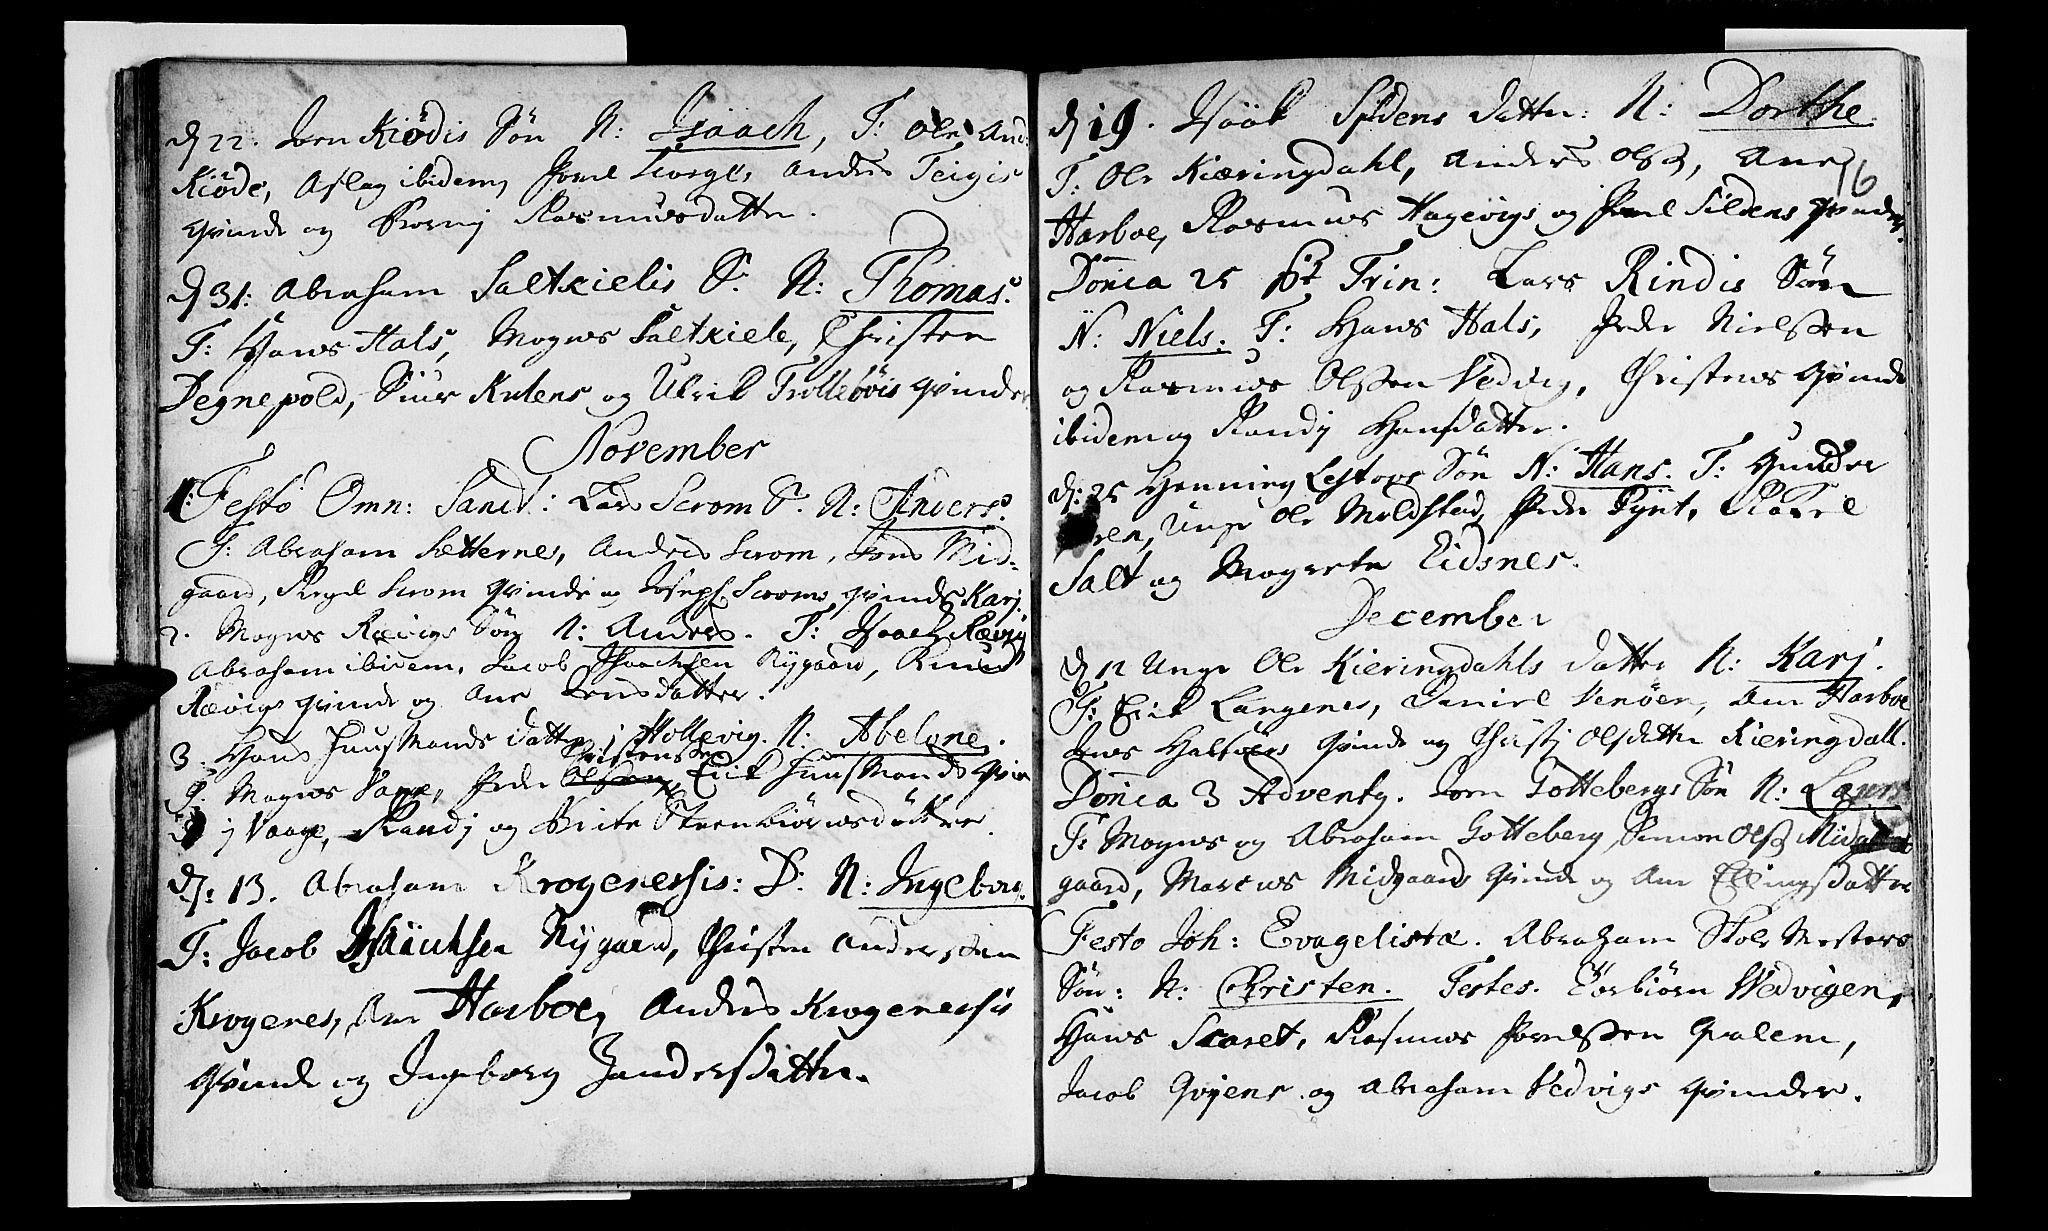 d 22. Jorn Kiödis Søn N: Isaach, T: Ole And:
Kiöde, Aslag ibidem, Poul Scorge, Anders Teigis
qvinde og Rasmusdatter.
d 31: Abraham Saltkielis S. N: Thomas.
T: Hans Hals, Mogns Saltkiele, Christen
Degnepold, Siur Kulens og Ulrik Trollebøis qvinder
November
1: Festo Omn: Sanct: Lars Scrom S. N: Anders.
T: Abraham Sætternes, Anders Scrom, Jens Mid-
gaard, Scrom qvinde og Joseph Scroms qvinde Karj.
2. Mogns Rævigs Søn N: Anders. T: Isach Rævig
Abraham ibidem, Jacob Isaachsen Nygaard, Knud
Rævigs qvinde og Ane Jensdatter.
3. Hans Huusmands datter j Hollevig. N: Abelone.
T. Mogns Vaage, Peder Christensen, Erik Huusmands qvin
de j Vaage, Randj og Brite Steenbiörnsdatter.
d: 13. Abraham Krogenessis: D: N: Ingeborg.
T: Jacob Isaachsen Nygaard, Christen Anderssen
Krogenes, Ane Harboe, Anders Krogenessis
qvinde og Ingeborg Zandersdatter.
d 19. Isaak Sildens datter: N: Dorthe.
T: Ole Kiæringdahl, Anders Olss, Ane
16
Harboe, Rasmus Hagevigs og Poul Sildens qvinder.
Don̅ca 25 pt Trin: Lars Rindis Søn
N: Niels. T: Hans Hals, Peder Nielssen
og Rasmus Olssen Vedvig, Christens qvinde
ibidem og Randj Hansdatter.
d: 25 Henning Lestops Søn N: Hans. T:
Unge Ole Moldstad, Peder Pynt,
Salt og Magrete Eidsnes.
December
d 12 Unge Ole Kieringdahls datter N: Karj.
T: Erik Langenes, Daniel Venøen, Ane Harboe
Jens Halsörs qvinde og Christj Olsdatter Kieringdall.
Don̅ca 3 Advent9. Jorn Gottebergs Søn N: Laurs
T: Mogns og Abraham Gotteberg, Simon Olss Mid
gaard, Marcus Midgaards qvinde og Ane Ellingsdatter
Festo Joh: Evagelistæ. Abraham Stoel Mesters
Søn: N: Christen. Testes. Torbiörn Vedvigen,
Hans Scaret, Rasmus Povelssen Qvalem,
Jacob Qvijens og Abraham Vedvigs qvinder.